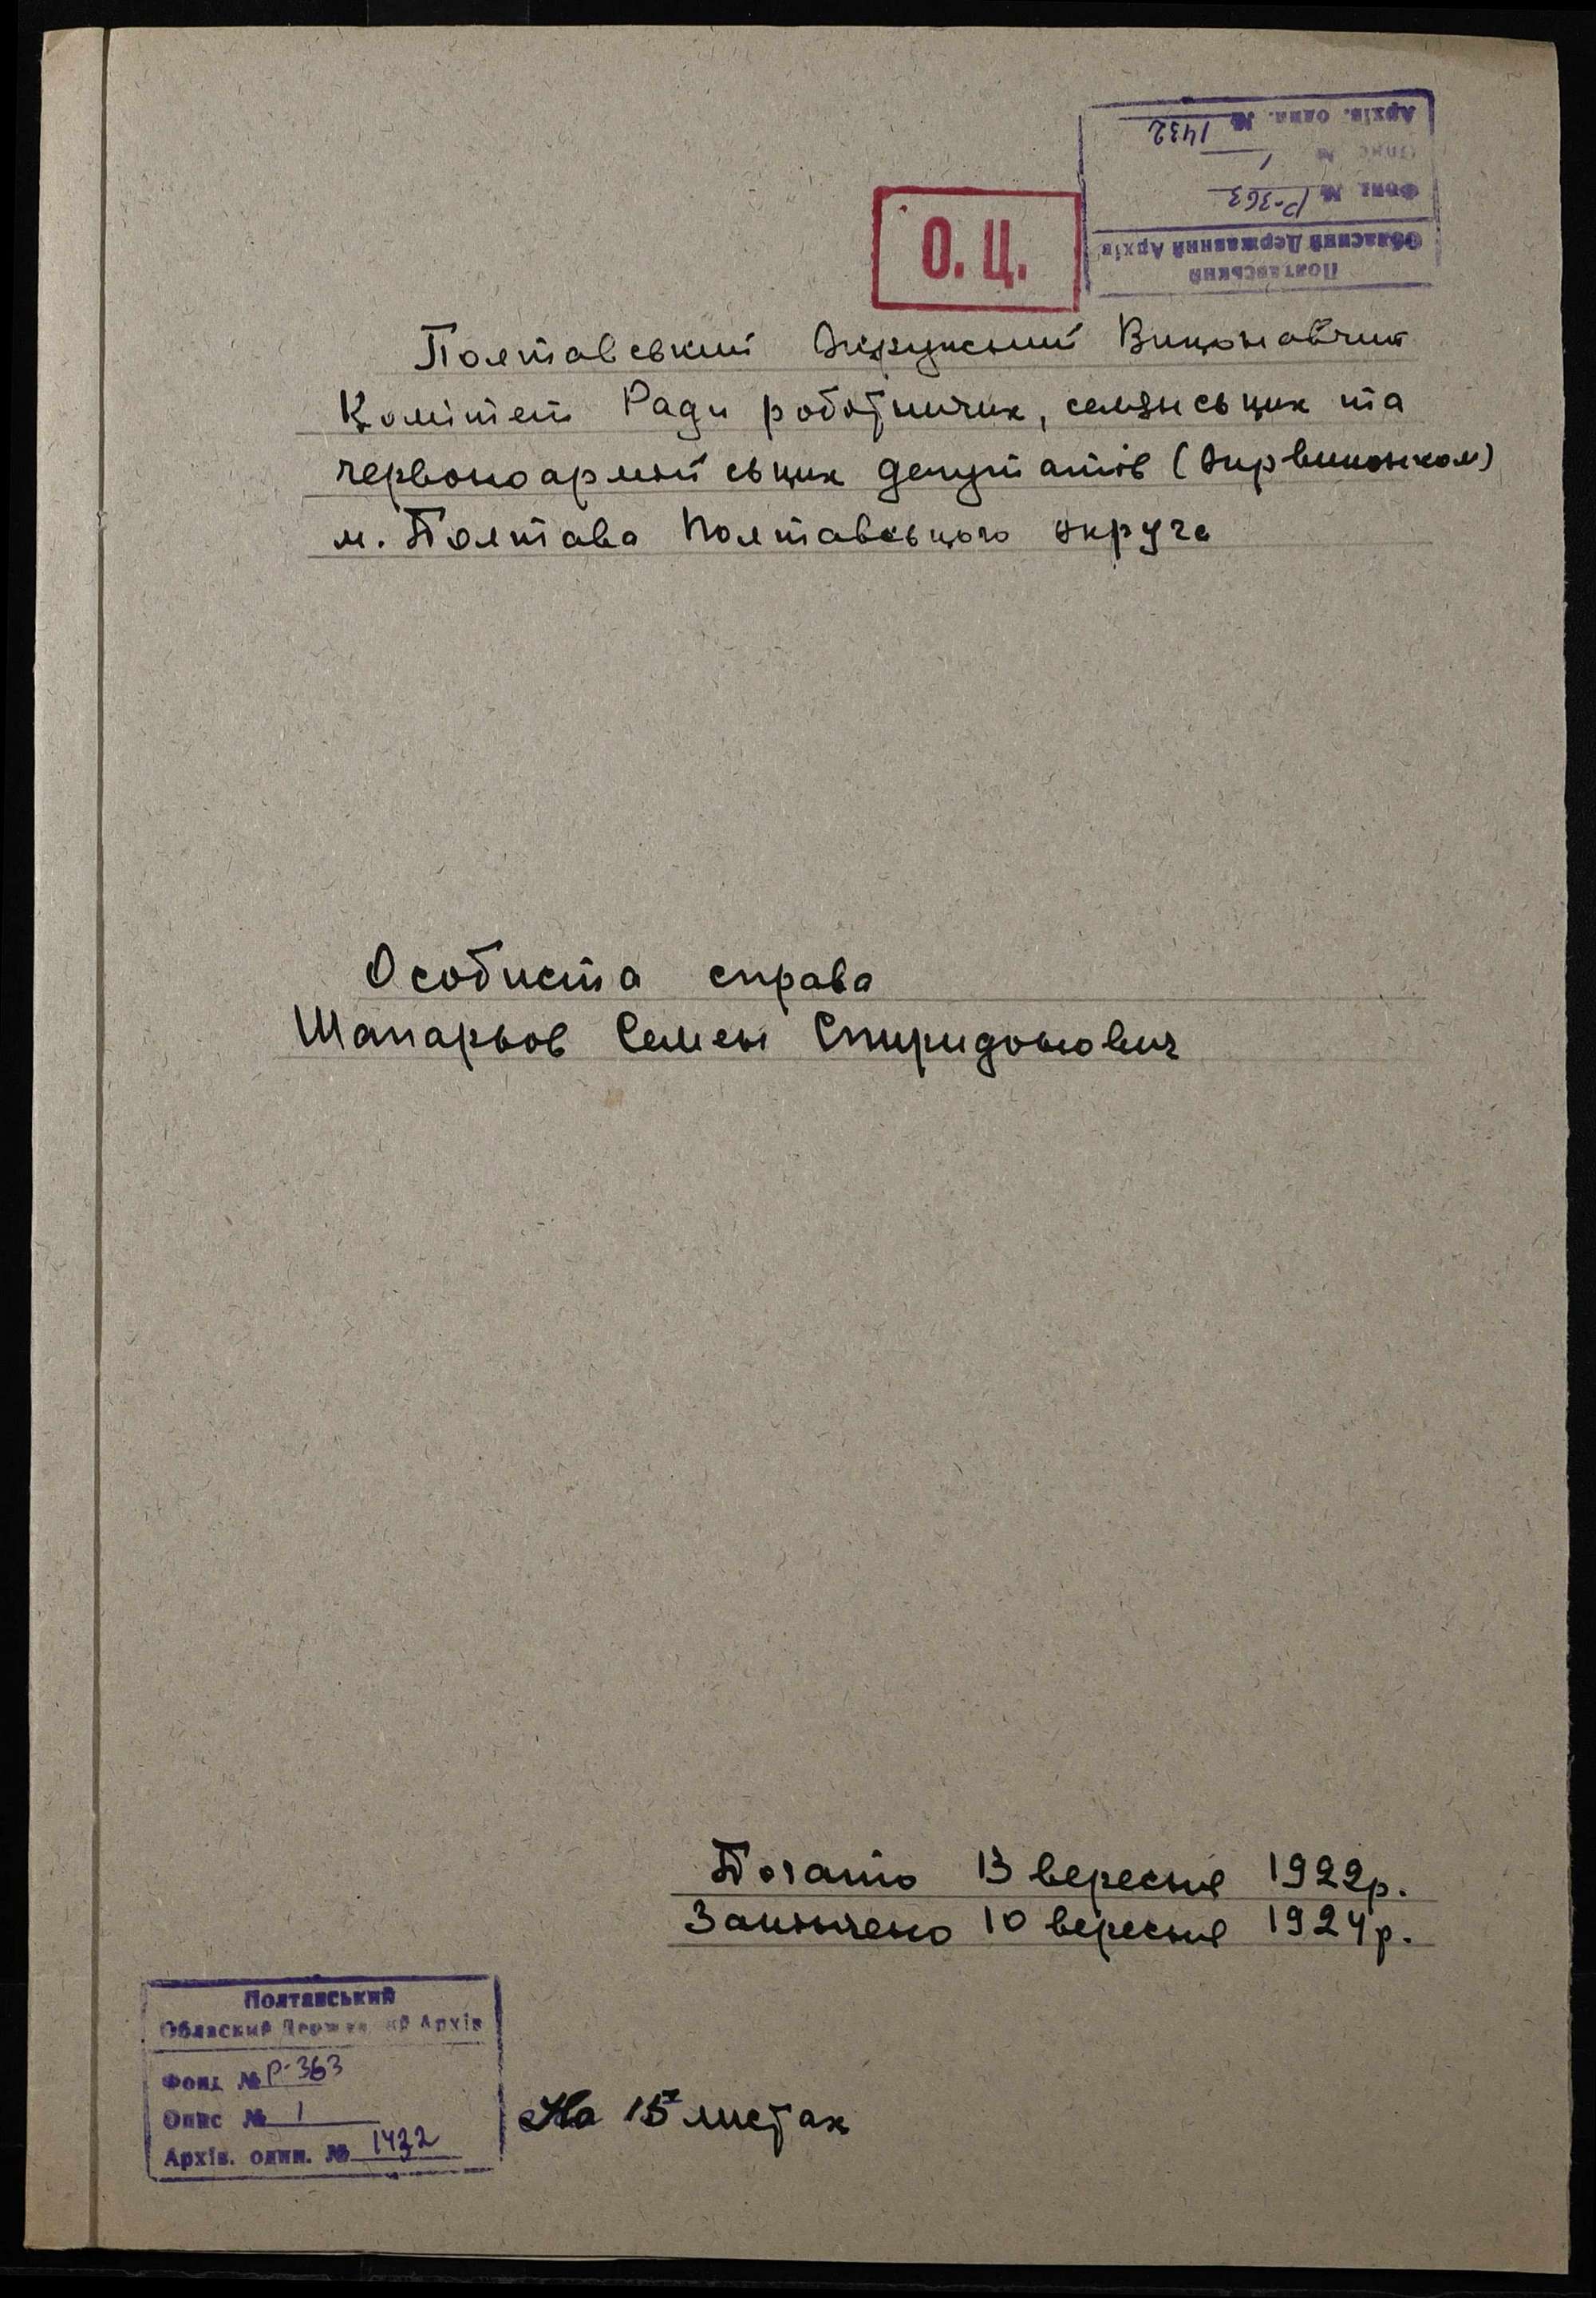 Полтавський
Обласний Державний Архів
Фонд № Р-363
Опис № 1
Архів. один. № 1432
О. Ц.
Полтавський Окружний Виконавчий
Комітет Ради робітничих, селянських та
червоноармійських депутатів (Окрвиконком)
м. Полтава Полтавського округа
Особиста справа
Шапарьов Семен Спиридонович
Почато 13 вересня 1922р.
Закінчено 10 вересня 1924р.
Полтавський
Обласний Державний Архів
Фонд № Р-363
Опис № 1
Архів. один. № 1432
На 15 листах